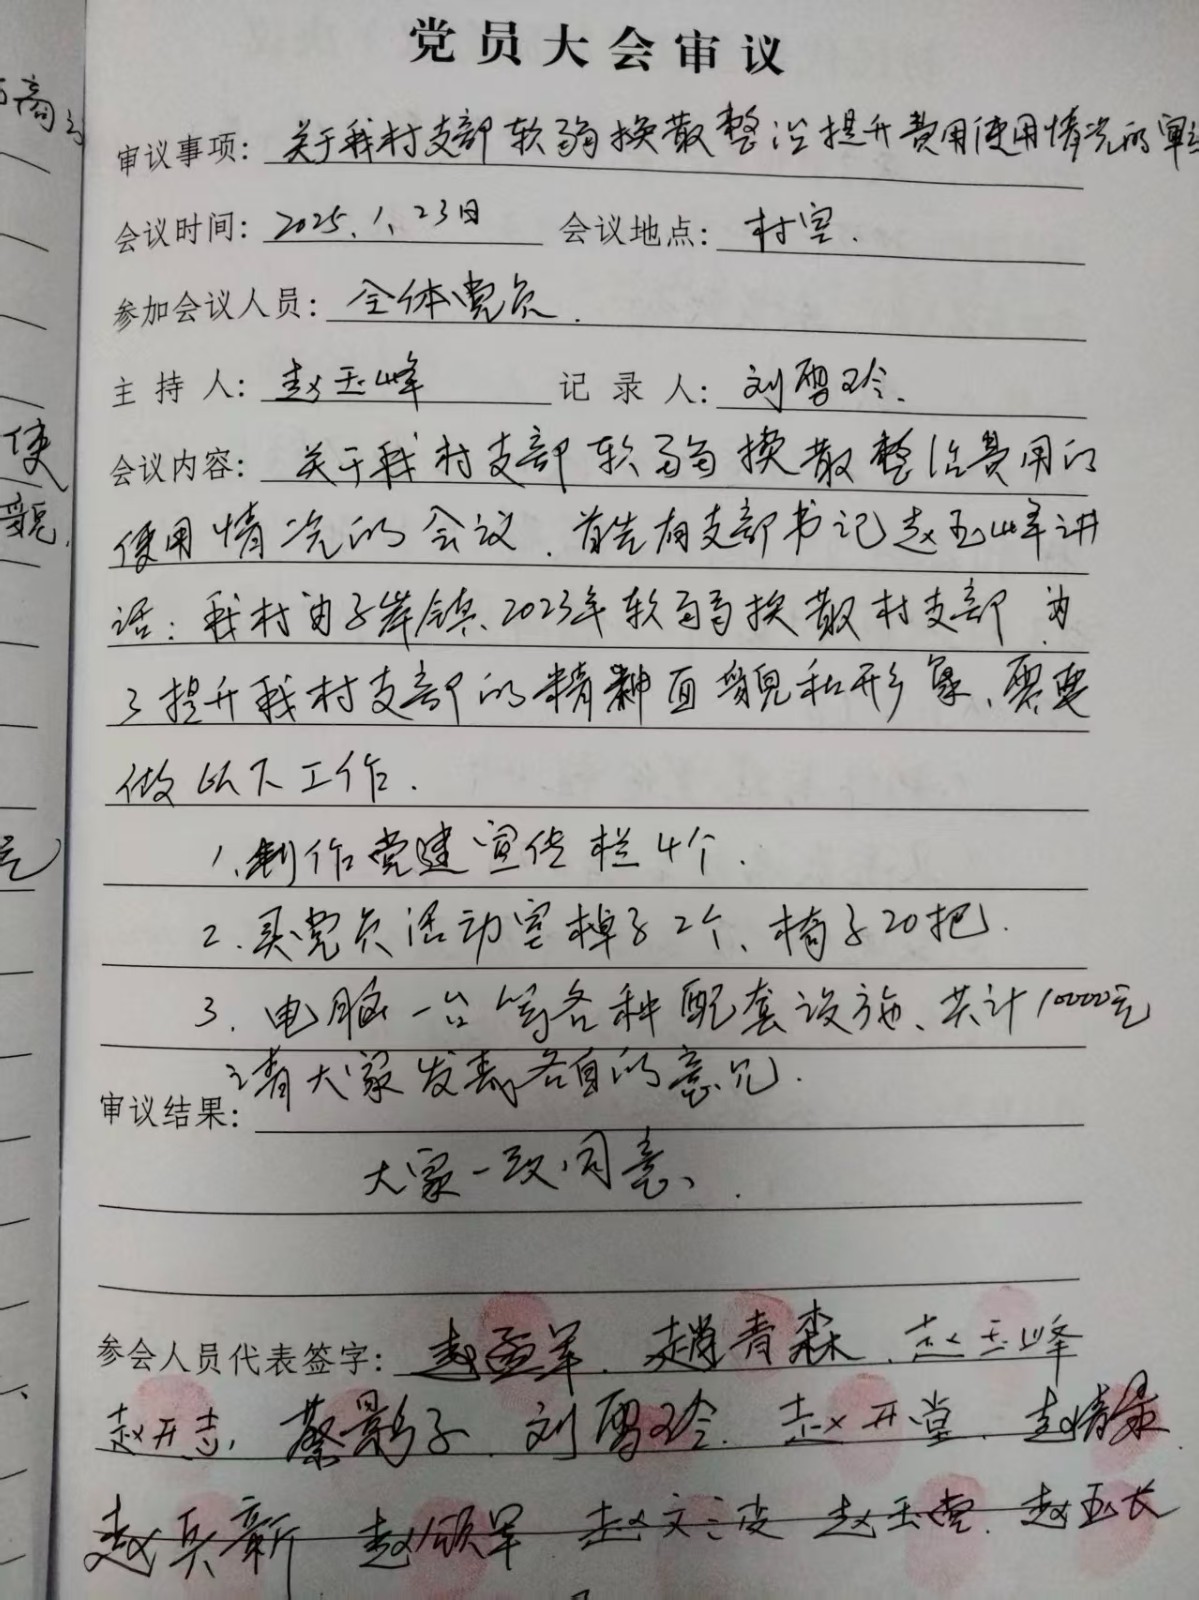 党员大会审议
审议事项: 关于我村支部软弱换散整治提升费用使用情况的审议
会议时间: 2025.1.23日 会议地点: 村室.
参加会议人员: 全体党员.
主持人: 赵玉峰 记录人: 刘雪玲.
会议内容: 关于我村支部软弱换散整治费用的
使用情况的会议. 首先有支部书记赵玉峰讲
话: 我村由子岸镇、2023年软弱换散村支部 为
了提升我村支部的精神面貌和形象、需要
做以下工作.
1.制作党建宣传栏4个.
2.买党员活动室棹子2个、椅子20把.
3.电脑一台等各种配套设施、共计10000元
请大家发表各自的意见.
审议结果:
大家一致同意、.
参会人员代表签字: 赵孟军. 趙青森. 赵玉峰
赵开志, 蔡影子. 刘雪玲. 赵开堂.
赵兵新 赵领军 赵文 赵玉堂. 赵玉长
商
使
貌.
元